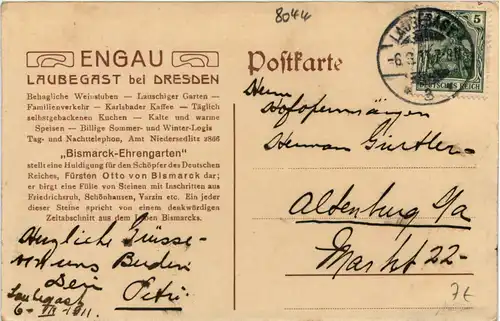 8044
ENGAU
LAUBEGAST bei DRESDEN
Behagliche Weinstuben — Lauschiger Garten —
Familienverkehr — Karlsbader Kaffee — Täglich
selbstgebackenen Kuchen — Kalte und warme
Speisen — Billige Sommer- und Winter-Logis
Tag- und Nachttelephon, Amt Niedersedlitz 2866
„Bismarck-Ehrengarten"
stellt eine Huldigung für den Schöpfer des Deutschen
Reiches, Fürsten Otto von Bismarck dar;
er birgt eine Fülle von Steinen mit Inschriften aus
Friedrichsruh, Schönhausen, Varzin etc. Ein jeder
dieser Steine spricht von einem denkwürdigen
Zeitabschnitt aus dem Leben Bismarcks.
Herzliche Grüsse
von uns Beiden
Dein
Petri
Laubegast
6. VII. 1911.
Postkarte
LAUBEGAST
5
DEUTSCHES REICH
Herrn
Hofopernsänger
Herman Gürtler
Altenburg S/a
Markt 22
7€